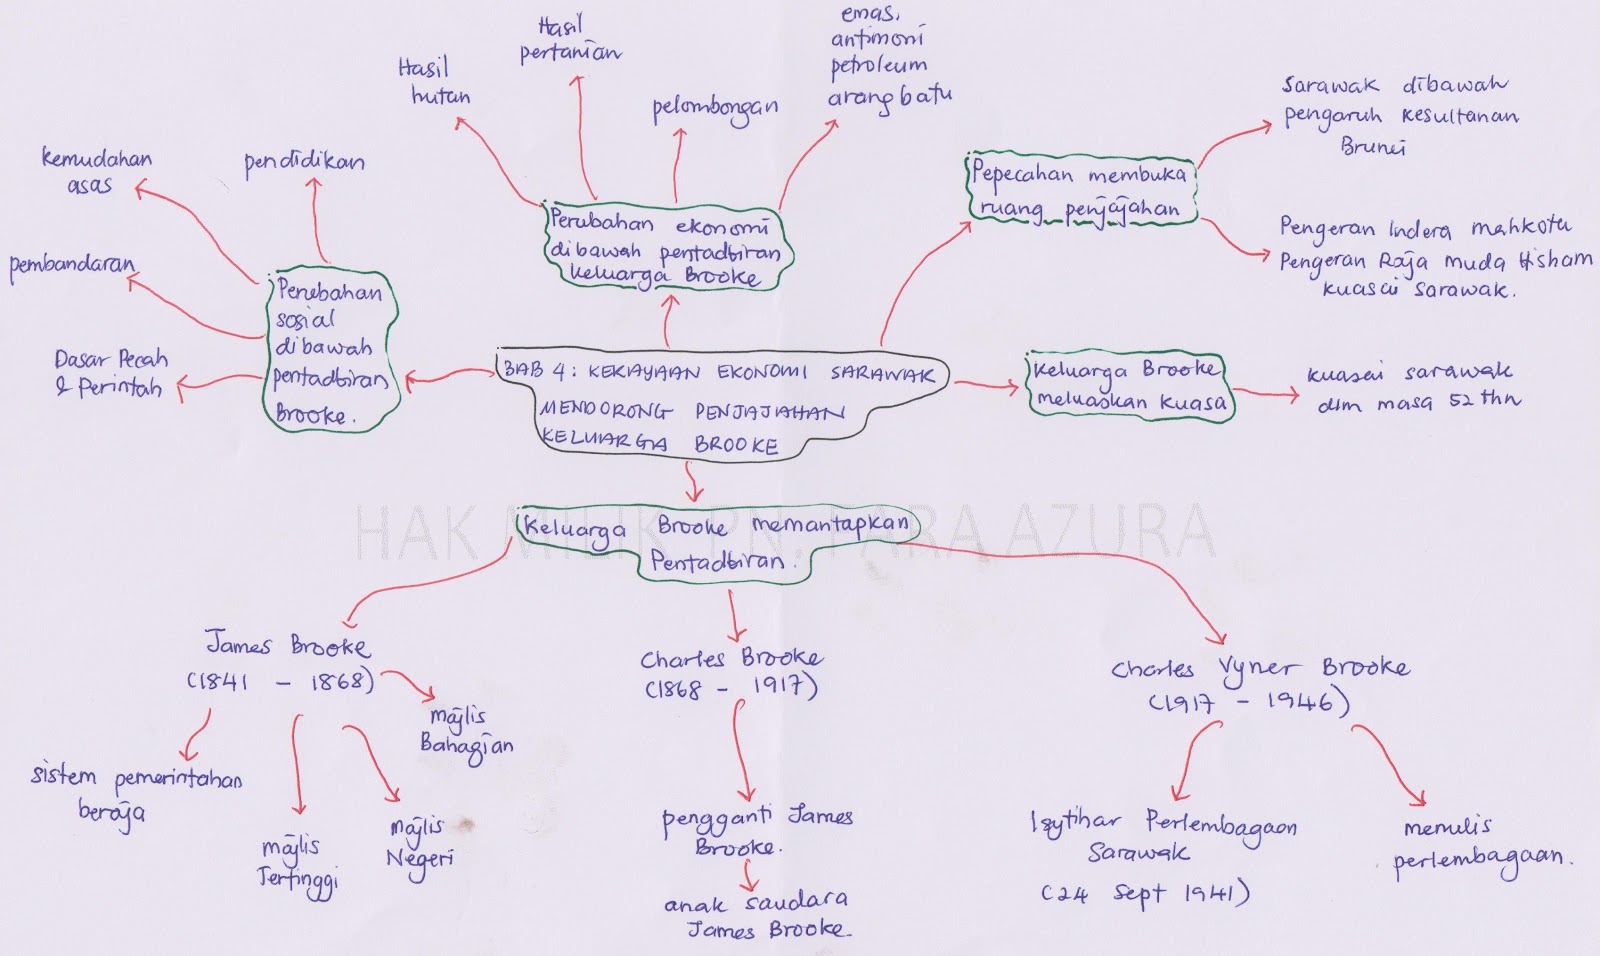 Hasil
hutan
Hasil
pertanian
pelombongan
emas,
antimoni
petroleum
arang batu
Sarawak dibawah
pengaruh kesultanan
Brunei
kemudahan
asas
pendidikan
pembandaran
Dasar Pecah
& Perintah
Perubahan
sosial
dibawah
pentadbiran
Brooke.
Perubahan ekonomi
dibawah pentadbiran
keluarga Brooke
Pepecahan membuka
ruang penjajahan
Pengeran Indera mahkota
Pengeran Raja muda Hisham
kuasai sarawak.
BAB 4: KEKAYAAN EKONOMI SARAWAK
MENDORONG PENJAJAHAN
KELUARGA BROOKE
Keluarga Brooke
meluaskan kuasa
kuasai sarawak
dlm masa 52 thn
HAK MILIK PN. FARA AZURA
Keluarga Brooke memantapkan
Pentadbiran.
James Brooke
(1841 - 1868)
sistem pemerintahan
beraja
majlis
Tertinggi
majlis
Negeri
majlis
Bahagian
Charles Brooke
(1868 - 1917)
pengganti James
Brooke.
anak saudara
James Brooke.
Charles Vyner Brooke
(1917 - 1946)
Isytihar Perlembagaan
Sarawak
(24 Sept 1941)
menulis
perlembagaan.